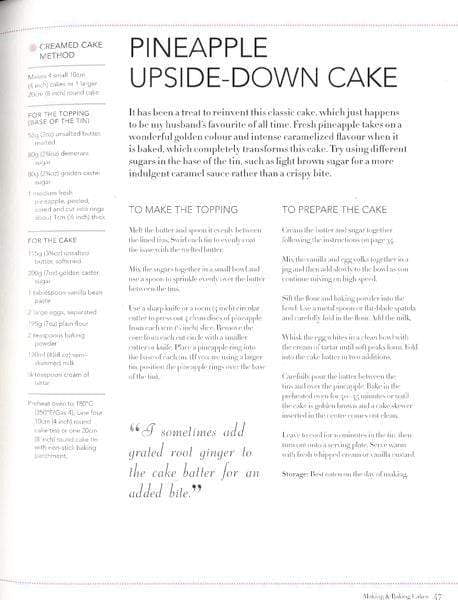 CREAMED CAKE
METHOD
Makes 4 small 10cm
(4 inch) cakes or 1 larger
20cm (8 inch) round cake
FOR THE TOPPING
(BASE OF THE TIN)
unsalted butter,
melted
80g (2¾oz) demerara
sugar
80g (2¾oz) golden caster
sugar
1 medium fresh
pineapple, peeled,
cored and cut into rings
about 1cm (½ inch) thick
FOR THE CAKE
115g unsalted
butter, softened
200g (7oz) golden caster
sugar
1 tablespoon vanilla bean
paste
2 large eggs, separated
195g (7oz) plain flour
2 teaspoons baking
powder
120ml semi-
skimmed milk
¼ teaspoon cream of
tartar
Preheat oven to 180°C
(350°F/Gas 4). Line four
10cm (4 inch) round
cake tins or one 20cm
(8 inch) round cake tin
with non-stick baking
parchment.
PINEAPPLE
UPSIDE-DOWN CAKE
It has been a treat to reinvent this classic cake, which just happens
to be my husband's favourite of all time. Fresh pineapple takes on a
wonderful golden colour and intense caramelized flavour when it
is baked, which completely transforms this cake. Try using different
sugars in the base of the tin, such as light brown sugar for a more
indulgent caramel sauce rather than a crispy bite.
TO MAKE THE TOPPING
Melt the butter and spoon it evenly between
the lined tins. Swirl each tin to evenly coat
the base with the melted butter.
Mix the sugars together in a small bowl and
use a spoon to sprinkle evenly over the butter
between the tins.
Use a sharp knife or a 10cm (4 inch) circular
cutter to press out 4 clean discs of pineapple
from each 1cm (½ inch) slice. Remove the
core from each cut circle with a smaller
cutter or knife. Place a pineapple ring into
the base of each tin. (If you are using a larger
tin, position the pineapple rings over the base
of the tin).
“I sometimes add
grated root ginger to
the cake batter for an
added bite.”
TO PREPARE THE CAKE
Cream the butter and sugar together
following the instructions on page
Mix the vanilla and egg yolks together in a
jug and then add slowly to the bowl as you
continue mixing on high speed.
Sift the flour and baking powder into the
bowl. Use a metal spoon or flat-blade spatula
and carefully fold in the flour. Add the milk.
Whisk the egg whites in a clean bowl with
the cream of tartar until soft peaks form. Fold
into the cake batter in two additions.
Carefully pour the batter between the
tins and over the pineapple. Bake in the
preheated oven for minutes or until
the cake is golden brown and a cake skewer
inserted in the centre comes out clean.
Leave to cool for 10 minutes in the tin, then
turn out onto a serving plate. Serve warm
with fresh whipped cream or vanilla custard.
Storage: Best eaten on the day of making.
Making & Baking Cakes 47